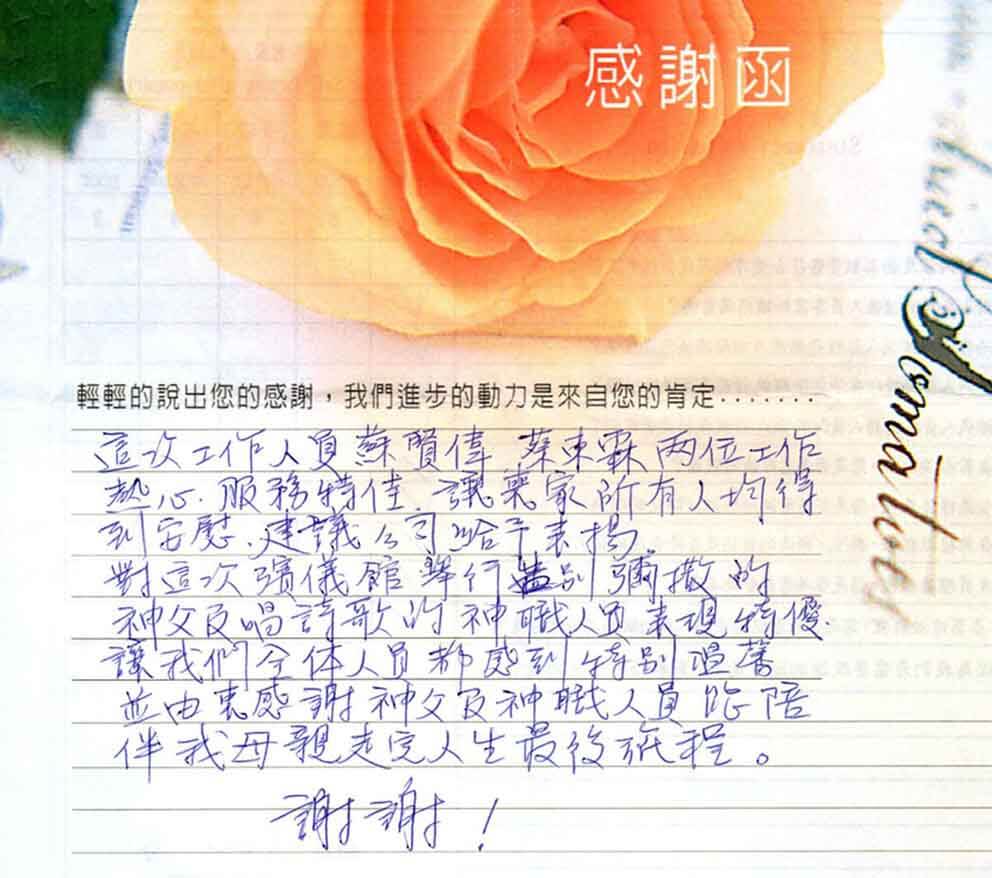 感謝函
輕輕的說出您的感謝，我們進步的動力是來自您的肯定.......
這次工作人員蘇賢偉 蔡東霖 两位工作
熱心.服務特佳.讓喪家所有人均得
到安慰.建議公司給予表揚.
對這次殯儀館舉行告別彌撒的
神父及唱詩歌的神職人員表現特優
讓我們全体人員都感到特別溫馨
並由衷感謝神父及神職人員 陪
伴我母親走完人生最後旅程。
謝謝！